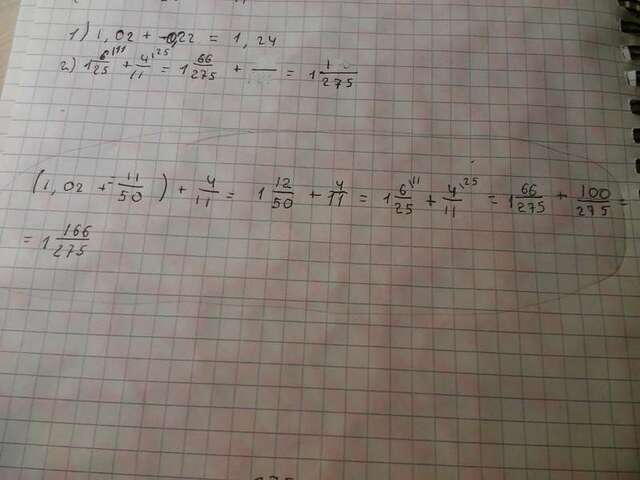 1) 1,02 + 0,22 = 1,24
2) 1 6/25 \11 + 4/11 \25 = 1 66/275 + — = 1 1/275
(1,02 + 11/50) + 4/11 = 1 12/50 + 4/11 = 1 6/25 \11 + 4/11 \25 = 1 66/275 + 100/275 =
= 1 166/275